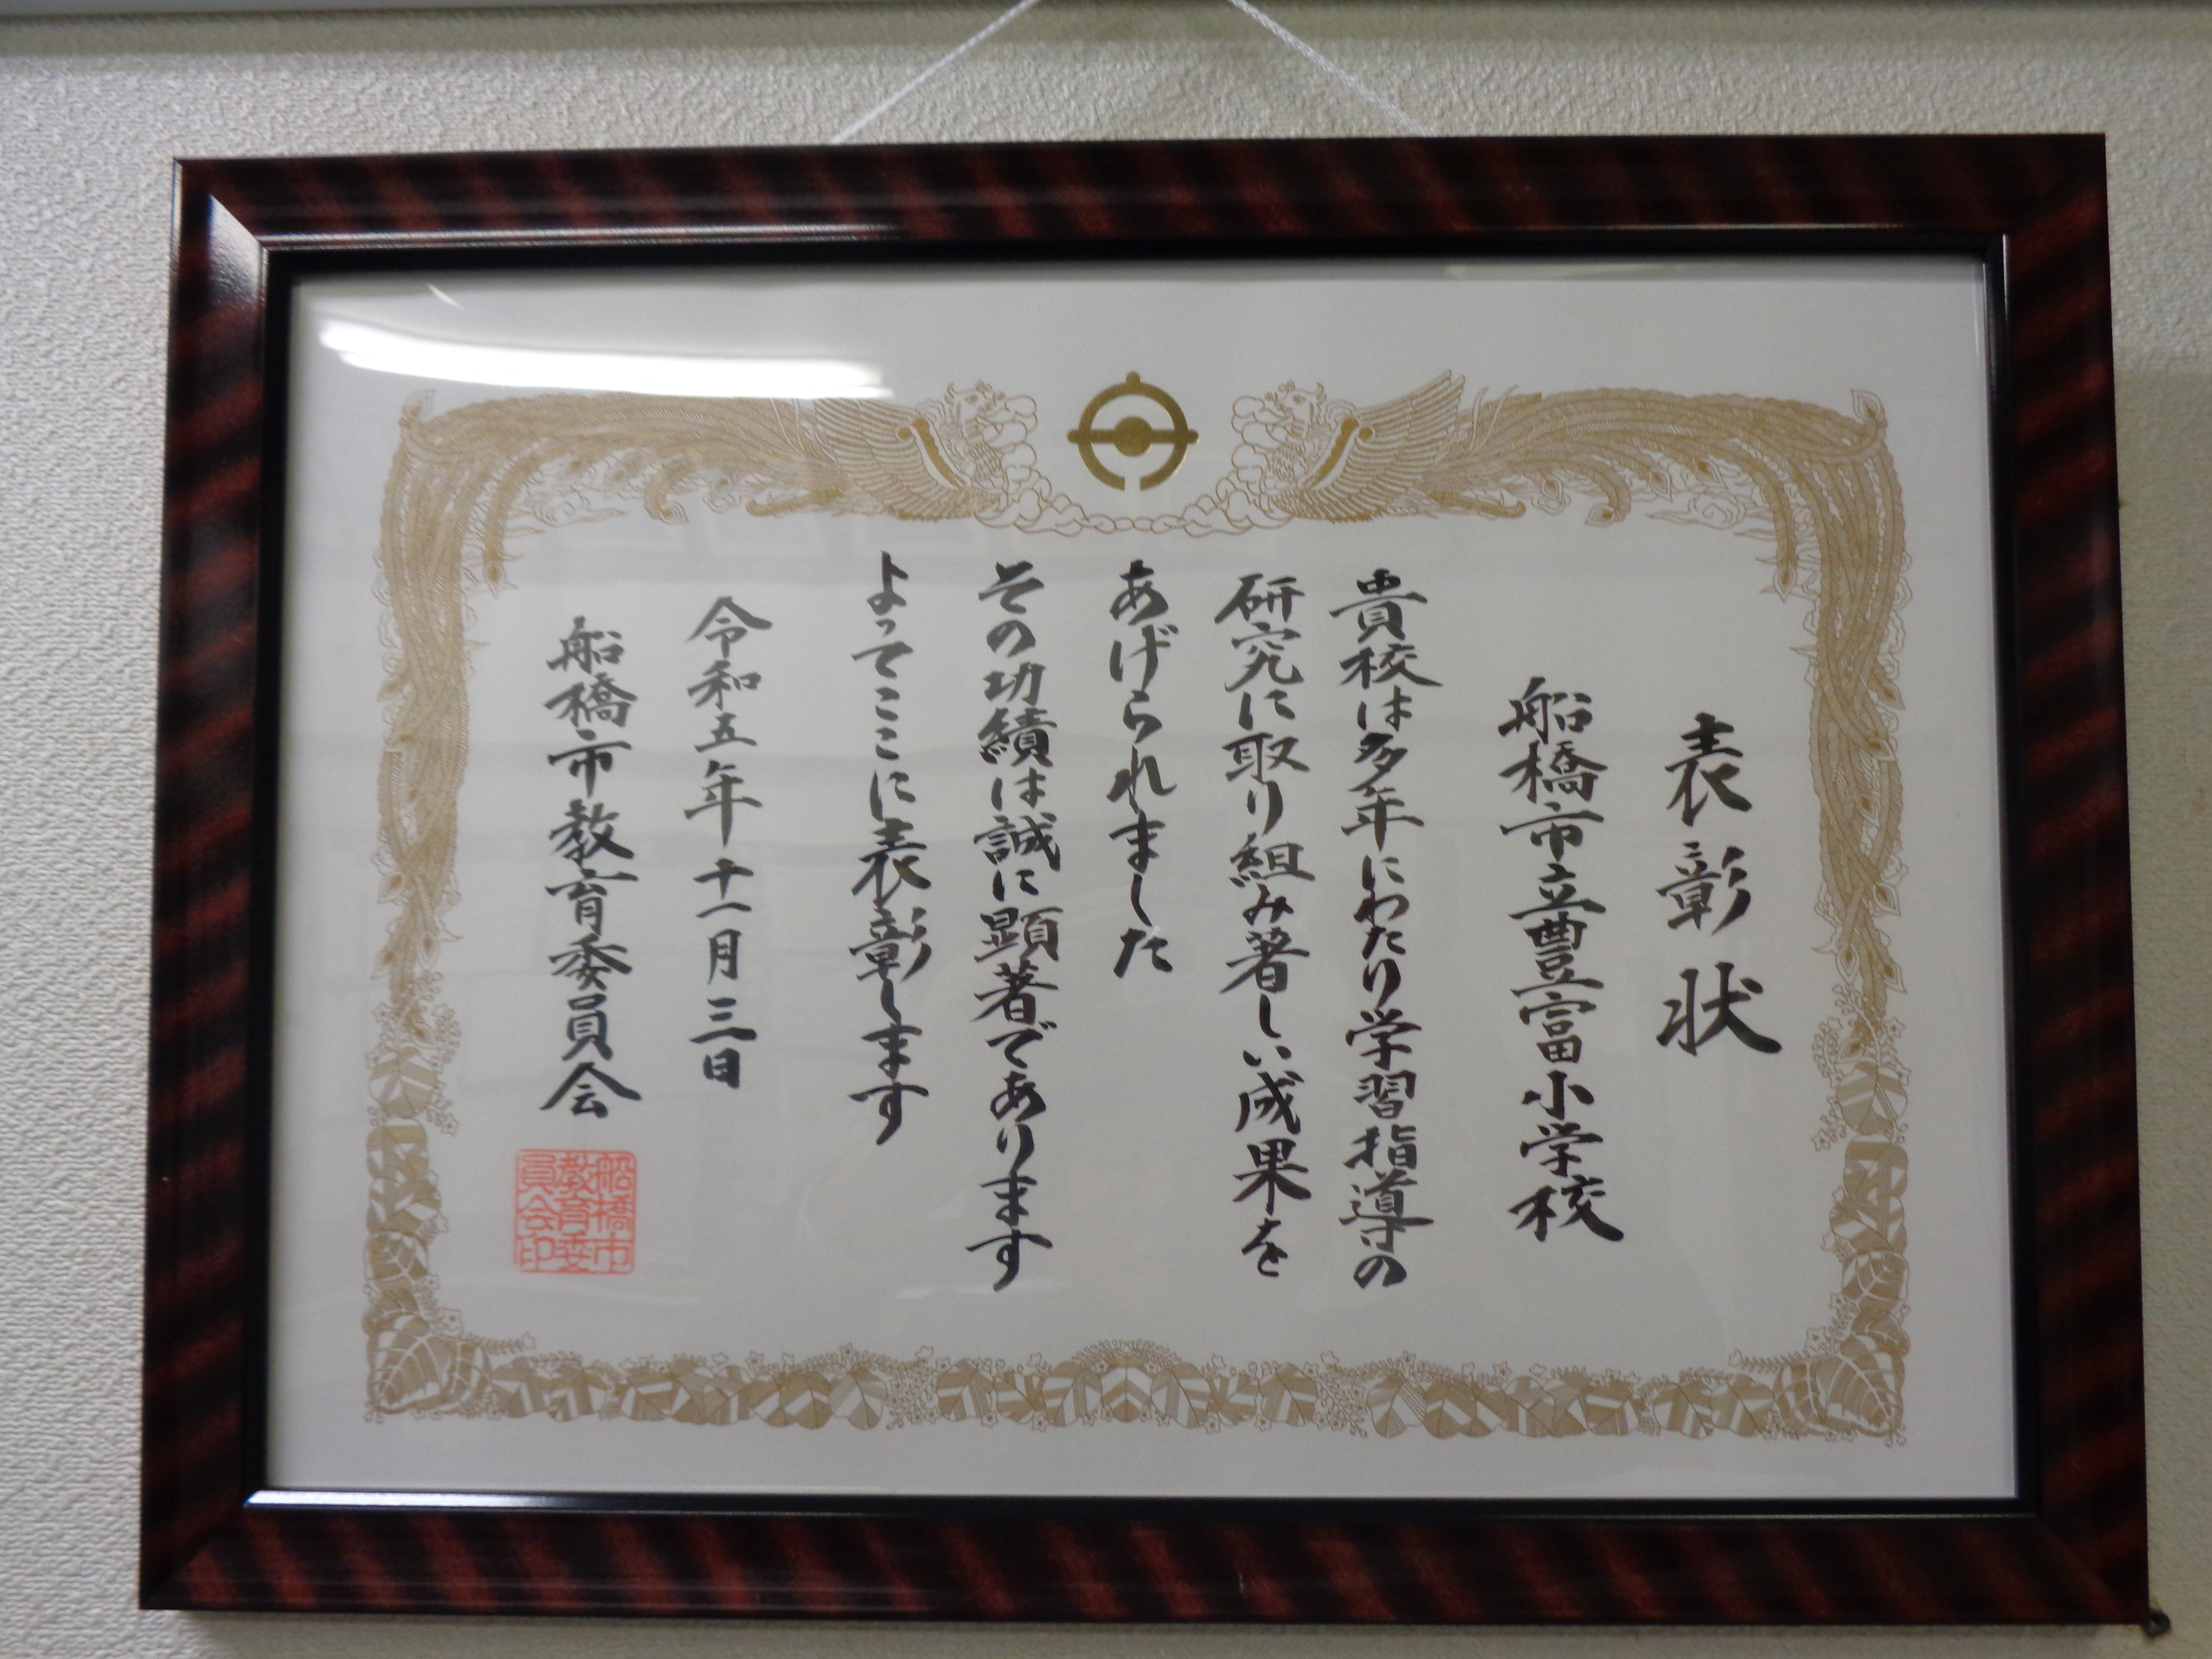 表彰状
船橋市立豊富小学校
貴校は多年にわたり学習指導の
研究に取り組み著しい成果を
あげられました
その功績は誠に顕著であります
よってここに表彰します
令和五年十一月三日
船橋市教育委員会
船橋市
教育委
員会印